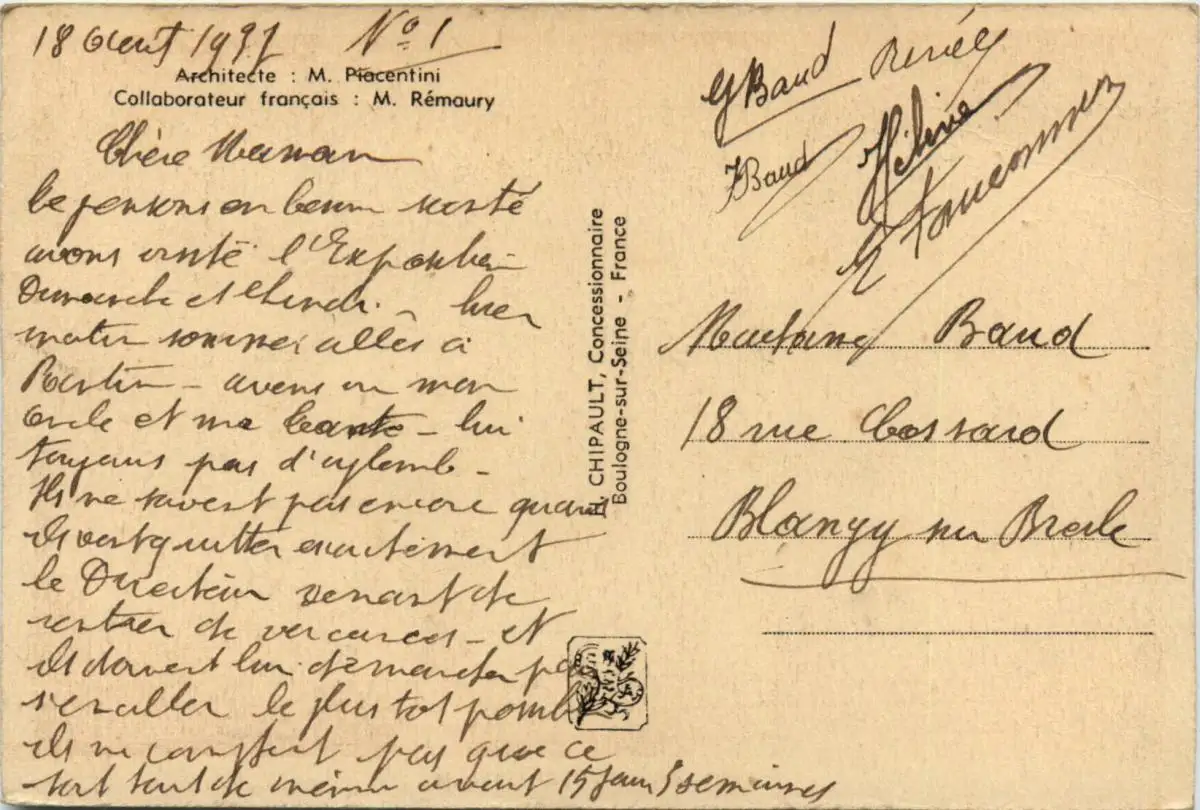 18 Aout 1937 N° 1
Architecte : M. Piacentini
Collaborateur français : M. Rémaury
Chère Maman
te pensons en bonne santé
avons visité l'Exposition
Dimanche et Lundi - hier
matin sommes allés à
avons vu mon
oncle et ma tante - lui
pas
Ils ne savent pas encore quand
ils vont quitter exactement
le Directeur venant de
rentrer de vacances - et
ils doivent lui demander pour
s'en aller le plus tot possible
ils ne comptent pas que ce
soit tout de même avant 15 jours 3 semaines
H. CHIPAULT, Concessionnaire
Boulogne-sur-Seine - France
G Baud Renée
Baud Hélène
Madame Baud
18 rue Cossard
Blangy sur Bresle